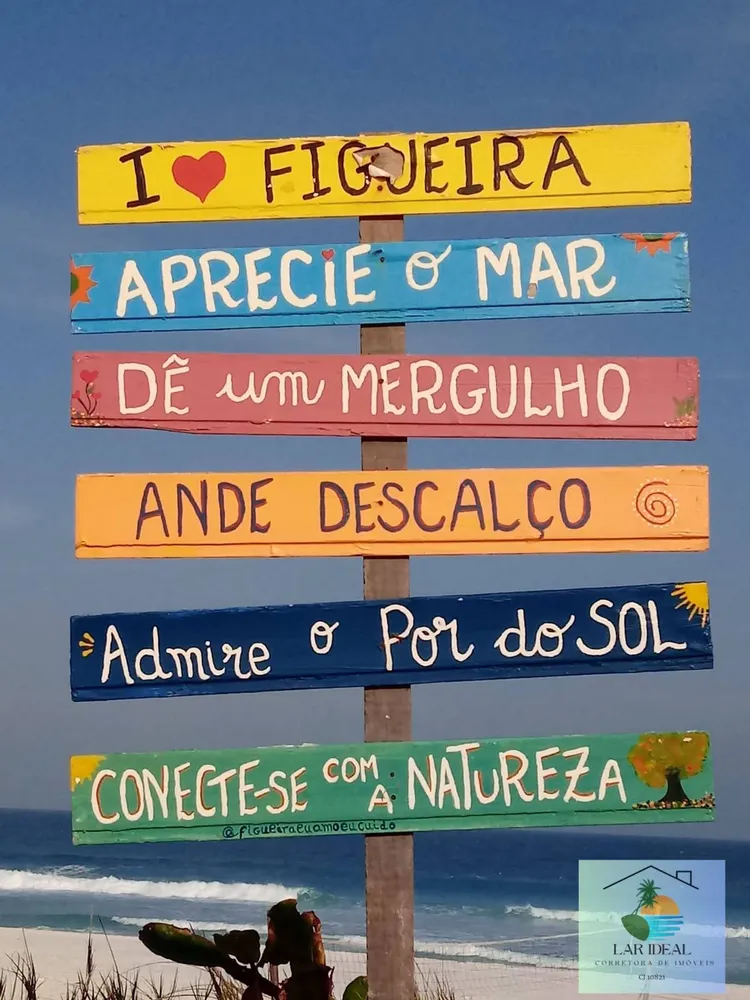 I ❤ FIGUEIRA
APRECIE O MAR
DÊ um MERGULHO
ANDE DESCALÇO
Admire o Por do SOL
CONECTE-SE COM A NATUREZA
@figueiraeuamoeucuido
LAR IDEAL
CORRETORA DE IMÓVEIS
CJ 10821